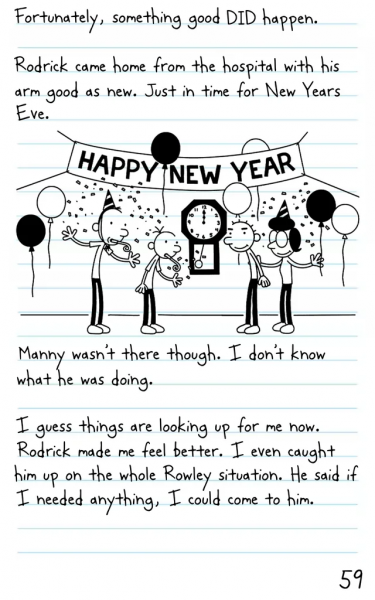 Fortunately, something good DID happen.
Rodrick came home from the hospital with his
arm good as new. Just in time for New Years
Eve.
HAPPY NEW YEAR
Manny wasn't there though. I don't know
what he was doing.
I guess things are looking up for me now.
Rodrick made me feel better. I even caught
him up on the whole Rowley situation. He said if
I needed anything, I could come to him.
59